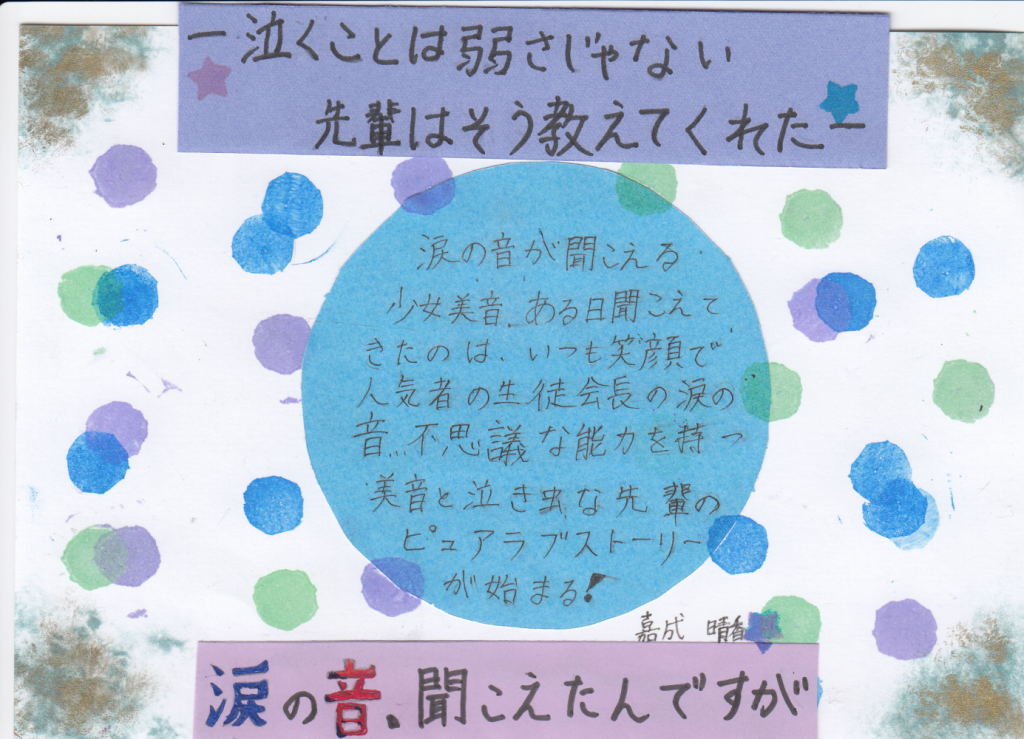 ー泣くことは弱さじゃない
先輩はそう教えてくれたー
涙の音が聞こえる
少女美音。ある日聞こえて
きたのは、いつも笑顔で
人気者の生徒会長の涙の
音…不思議な能力を持つ
美音と泣き虫な先輩の
ピュアラブストーリー
が始まる!
嘉成 晴香
涙の音、聞こえたんですが